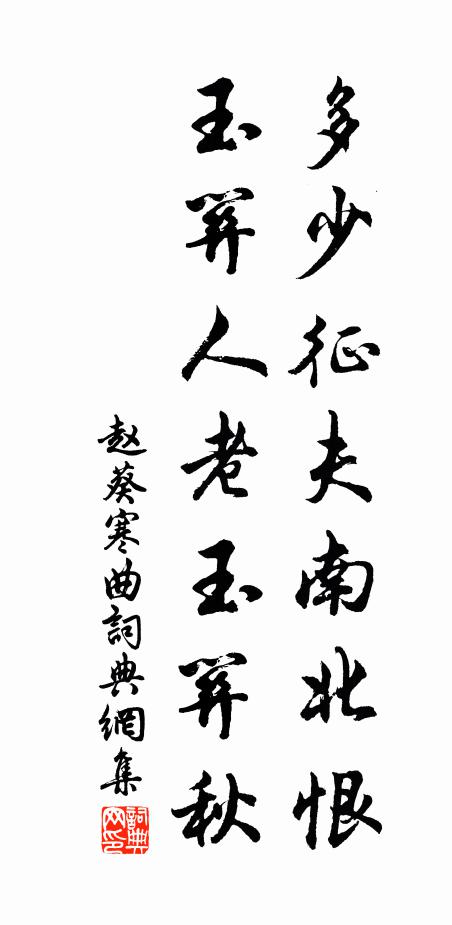 多少征夫南北恨
玉關人老玉關秋
赵葵寒曲詞典網集
詞典网印